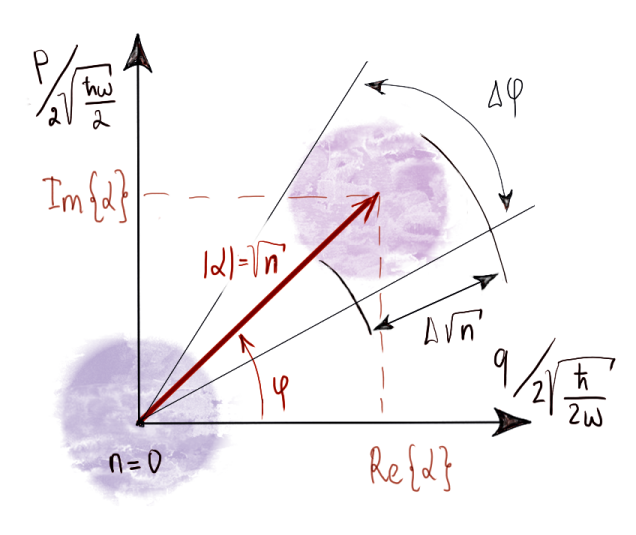 P/2√(ħω/2)
Δφ
Im{α}
|α|=√n
Δ√n
q/2√(ħ/2ω)
φ
n=0
Re{α}